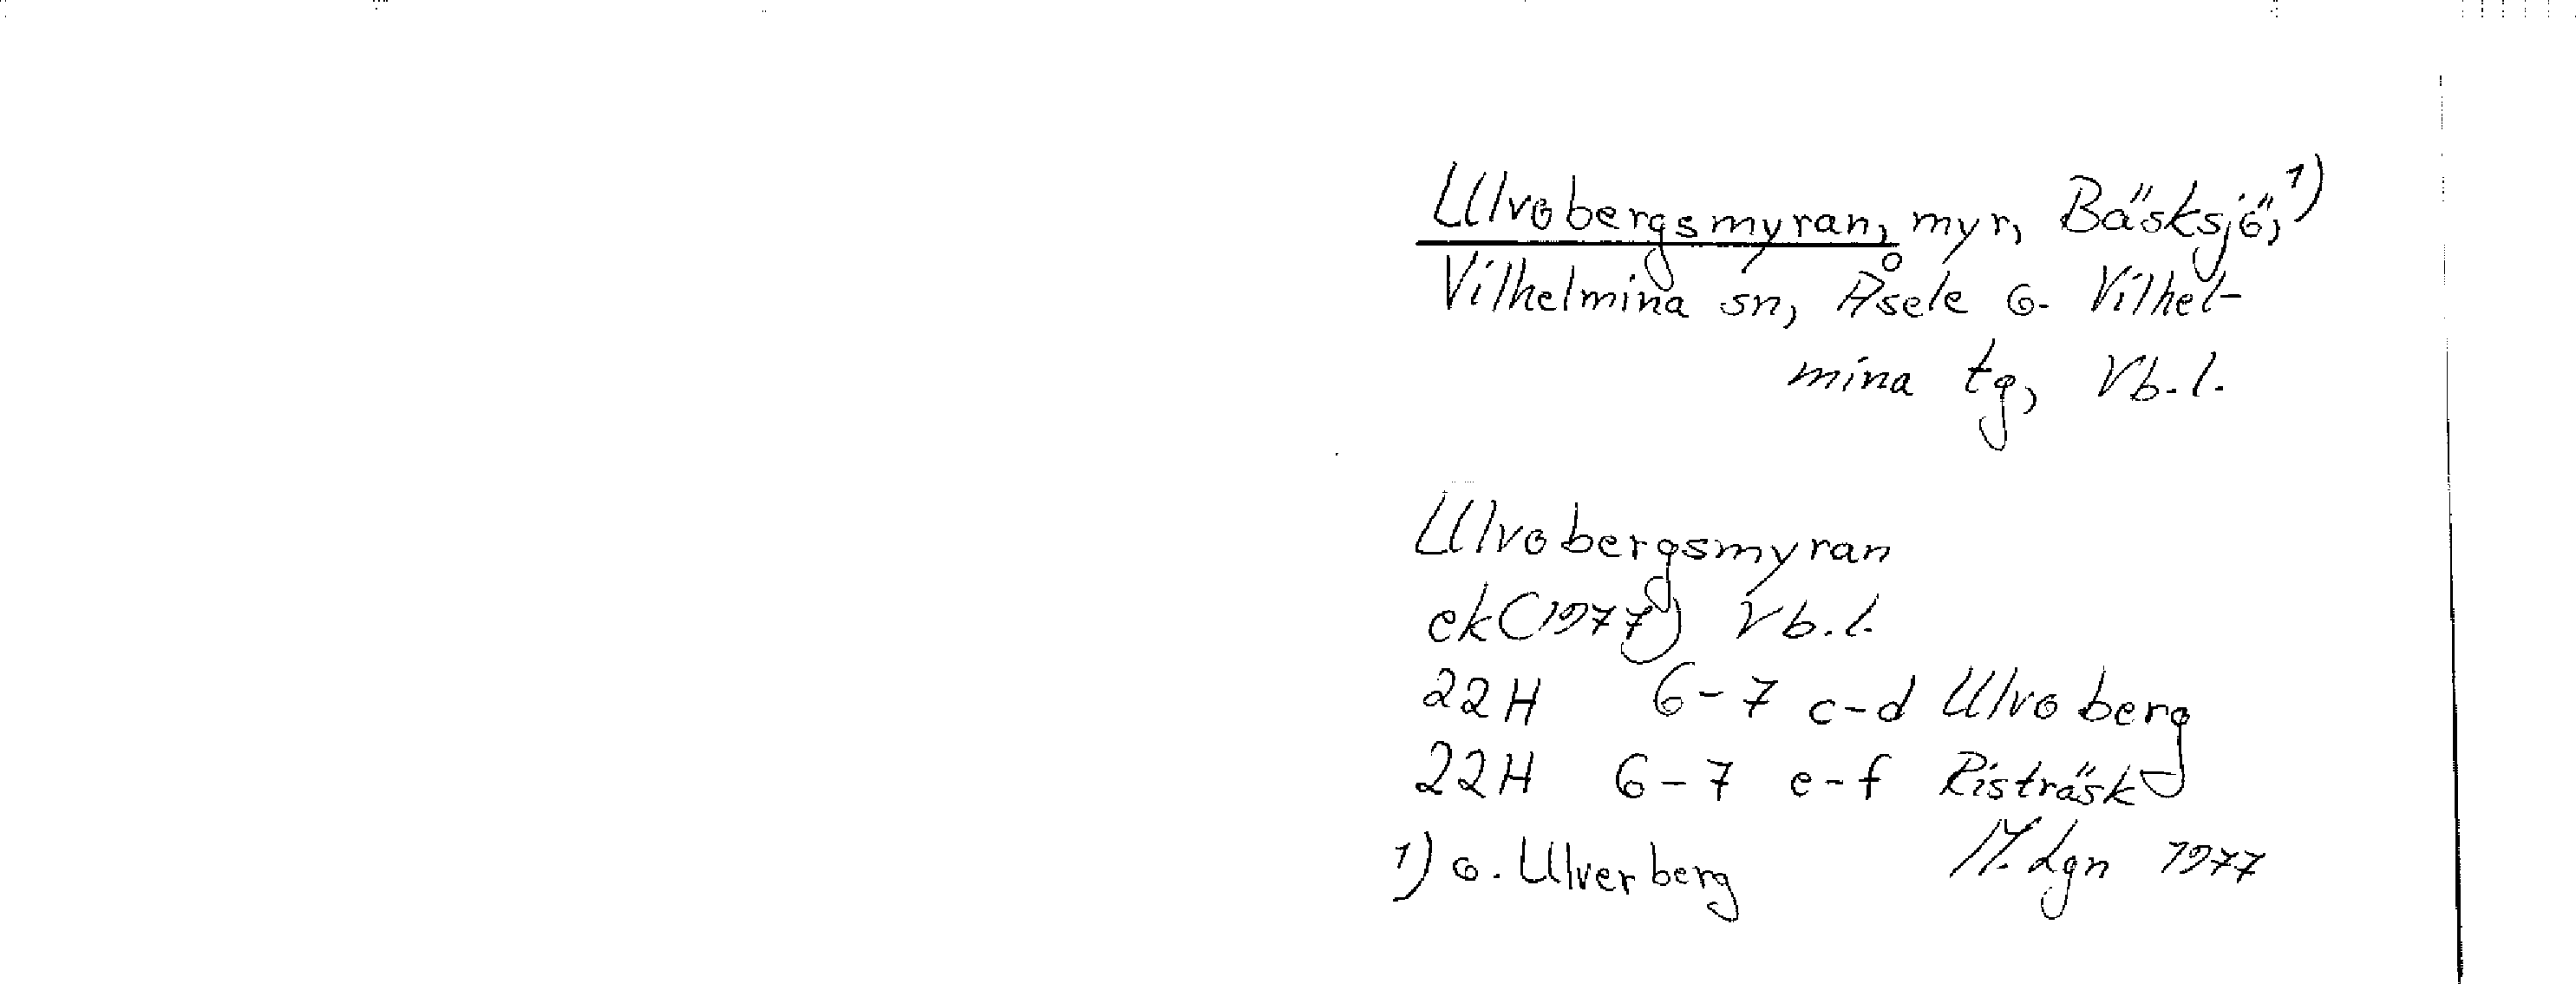 Ulvobergsmyran, myr, Bäsksjö, 1)
Vilhelmina sn, Åsele o. Vilhel-
mina tg, Vb.l.
Ulvobergsmyran
ek (1977) Vb.l.
22H 6-7 c-d Ulvoberg
22H 6-7 e-f Risträsk
1) o. Ulverberg M. Lgn 1977